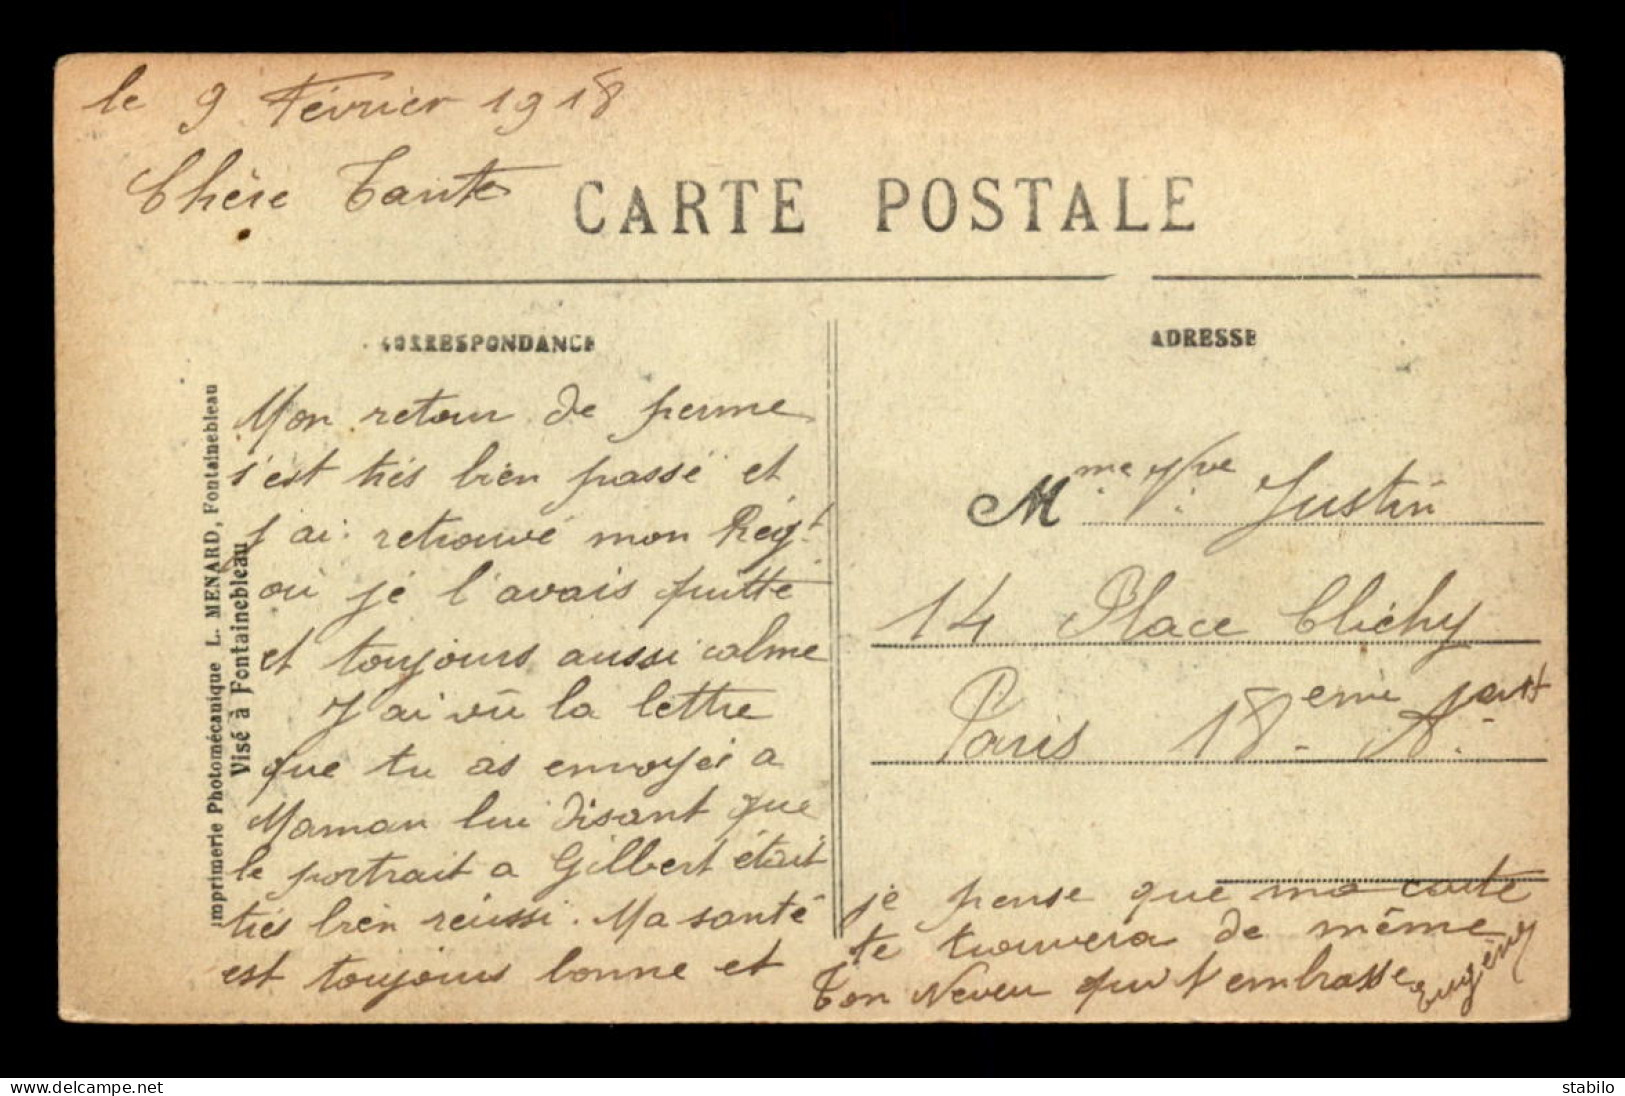 le 9 Février 1918
Chère Tante
CARTE POSTALE
CORRESPONDANCE
Mon retour de perme
s'est très bien passé et
j'ai retrouvé mon Régt
où je l'avais quitté
et toujours aussi calme
J'ai vu la lettre
que tu as envoyée a
Maman lui disant que
le portrait a Gilbert était
très bien réussi. Ma santé
est toujours bonne et
je pense que ma carte
te trouvera de même
Ton Neveu qui t'embrasse
Eugène
ADRESSE
Mme Vve Justin
14 Place Clichy
Paris 18ème Arrt
Imprimerie Photomécanique L. MENARD, Fontainebleau
Visé à Fontainebleau
delcampe.net
stabilo